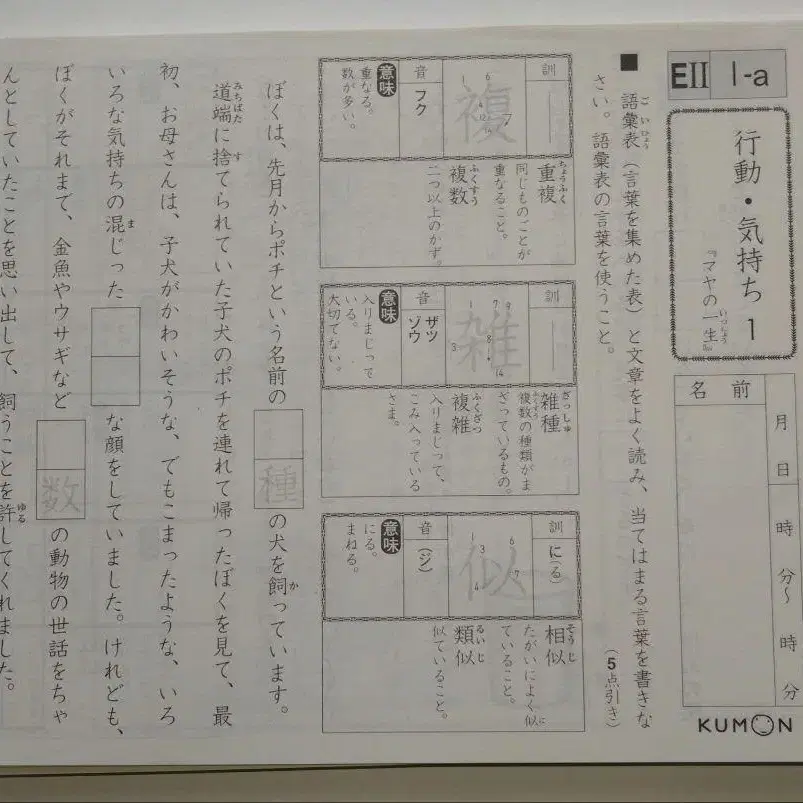 EII 1-a
行動・気持ち 1
『マヤの一生』
いっしょう
名前
月 日
時 分〜 時 分
KUMON
■ 語彙表(言葉を集めた表)と文章をよく読み、当てはまる言葉を書きな
ごいひょう
さい。語彙表の言葉を使うこと。
(5点引き)
訓 ―
複
音 フク
意味 重なる。
数が多い。
重複
ちょうふく
同じものごとが
重なること。
複数
ふくすう
二つ以上のかず。
訓 ―
雑
音 ザツ
ゾウ
意味 入りまじって
いる。
大切でない。
雑種
ざっしゅ
複数の種類がま
ふくすう
ざっているもの。
複雑
ふくざつ
入りまじって、
こみ入っている
さま。
訓 に(る)
似
音 (ジ)
意味 にる。
まねる。
相似
そうじ
たがいによく似
に
ていること。
類似
るいじ
似ていること。
ぼくは、先月からポチという名前の 種 の犬を飼っています。
か
道端に捨てられていた子犬のポチを連れて帰ったぼくを見て、最
みちばた す
初、お母さんは、子犬がかわいそうな、でもこまったような、いろ
いろな気持ちの混じった な顔をしていました。けれども、
ま
ぼくがそれまで、金魚やウサギなど 数 の動物の世話をちゃ
んとしていたことを思い出して、飼うことを許してくれました。
ゆる